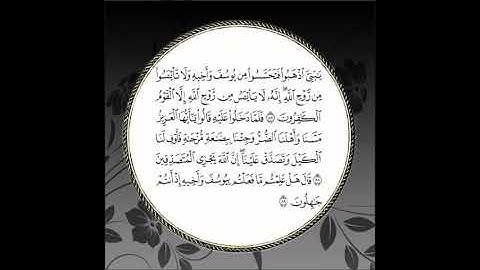 يَبَنِىَّ ٱذْهَبُوا۟ فَتَحَسَّسُوا۟ مِن يُوسُفَ وَأَخِيهِ وَلَا تَا۟يْـَٔسُوا۟
مِن رَّوْحِ ٱللَّهِ إِنَّهُۥ لَا يَا۟يْـَٔسُ مِن رَّوْحِ ٱللَّهِ إِلَّا ٱلْقَوْمُ
ٱلْكَـٰفِرُونَ ٨٧ فَلَمَّا دَخَلُوا۟ عَلَيْهِ قَالُوا۟ يَـٰٓأَيُّهَا ٱلْعَزِيزُ
مَسَّنَا وَأَهْلَنَا ٱلضُّرُّ وَجِئْنَا بِبِضَـٰعَةٍ مُّزْجَىٰةٍ فَأَوْفِ لَنَا
ٱلْكَيْلَ وَتَصَدَّقْ عَلَيْنَآ إِنَّ ٱللَّهَ يَجْزِى ٱلْمُتَصَدِّقِينَ
٨٨ قَالَ هَلْ عَلِمْتُم مَّا فَعَلْتُم بِيُوسُفَ وَأَخِيهِ إِذْ أَنتُمْ
جَـٰهِلُونَ ٨٩